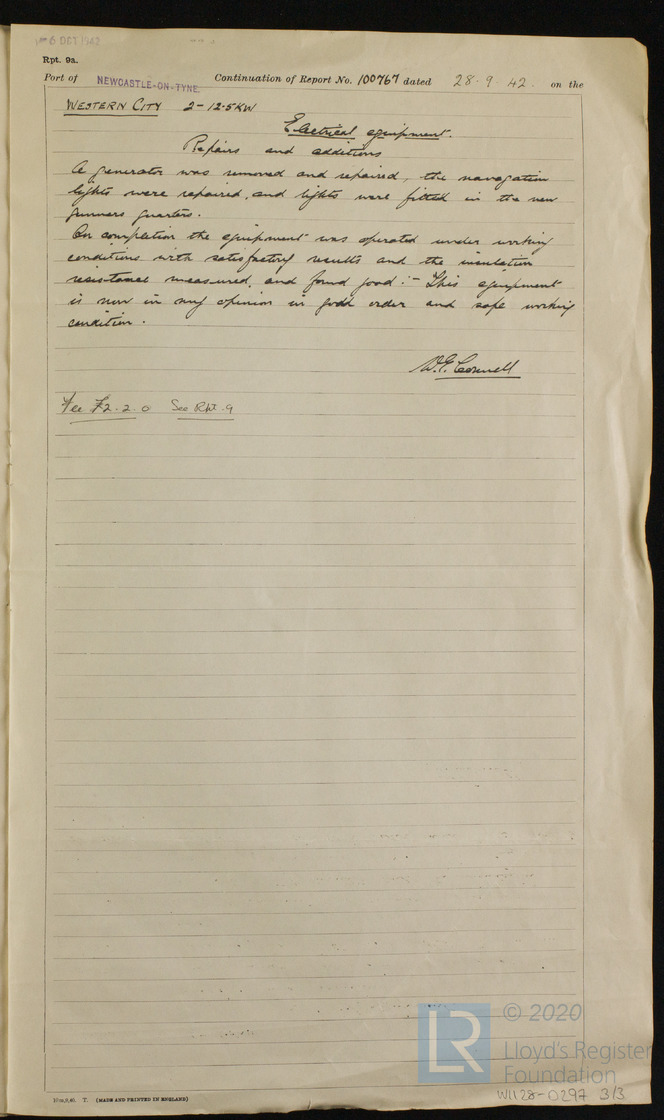 6 OCT 1942
Rpt. 9a.
Port of NEWCASTLE-ON-TYNE. Continuation of Report No. 100767 dated 28.9.42. on the
WESTERN CITY 2-12.5KW
Electrical equipment.
Repairs and additions
A generator was removed and repaired, the navagation
lights were repaired, and lights were fitted in the new
gunners quarters.
On completion the equipment was operated under working
conditions with satisfactory results and the insulation
resistance measured, and found good:- This equipment
is now in my opinion in good order and safe working
condition.
W.E. Cornell
Fee £2.2.0 See Rpt. 9
10m,9,40. T. (MADE AND PRINTED IN ENGLAND)
LR
© 2020
Lloyd's Register
Foundation
W1128-0297 3/3